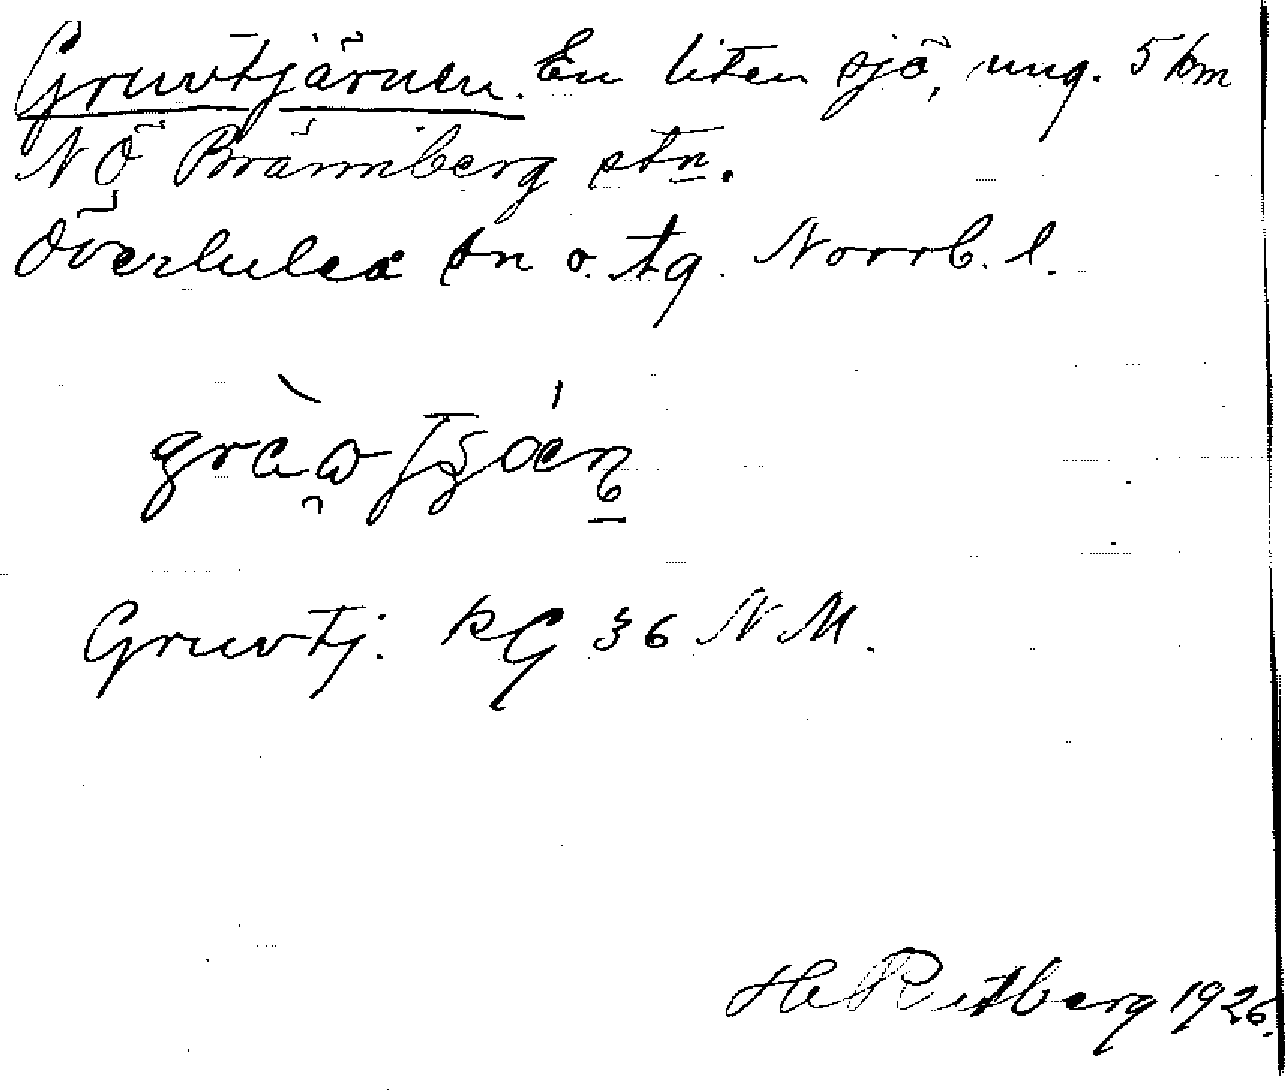 Gruvtjärnen. En liten sjö, ung. 5 km
NÖ Brännberg stn.
Överluleå sn o. tg. Norrb. l.
Gruvtj. KG 36 N.M.
1926.